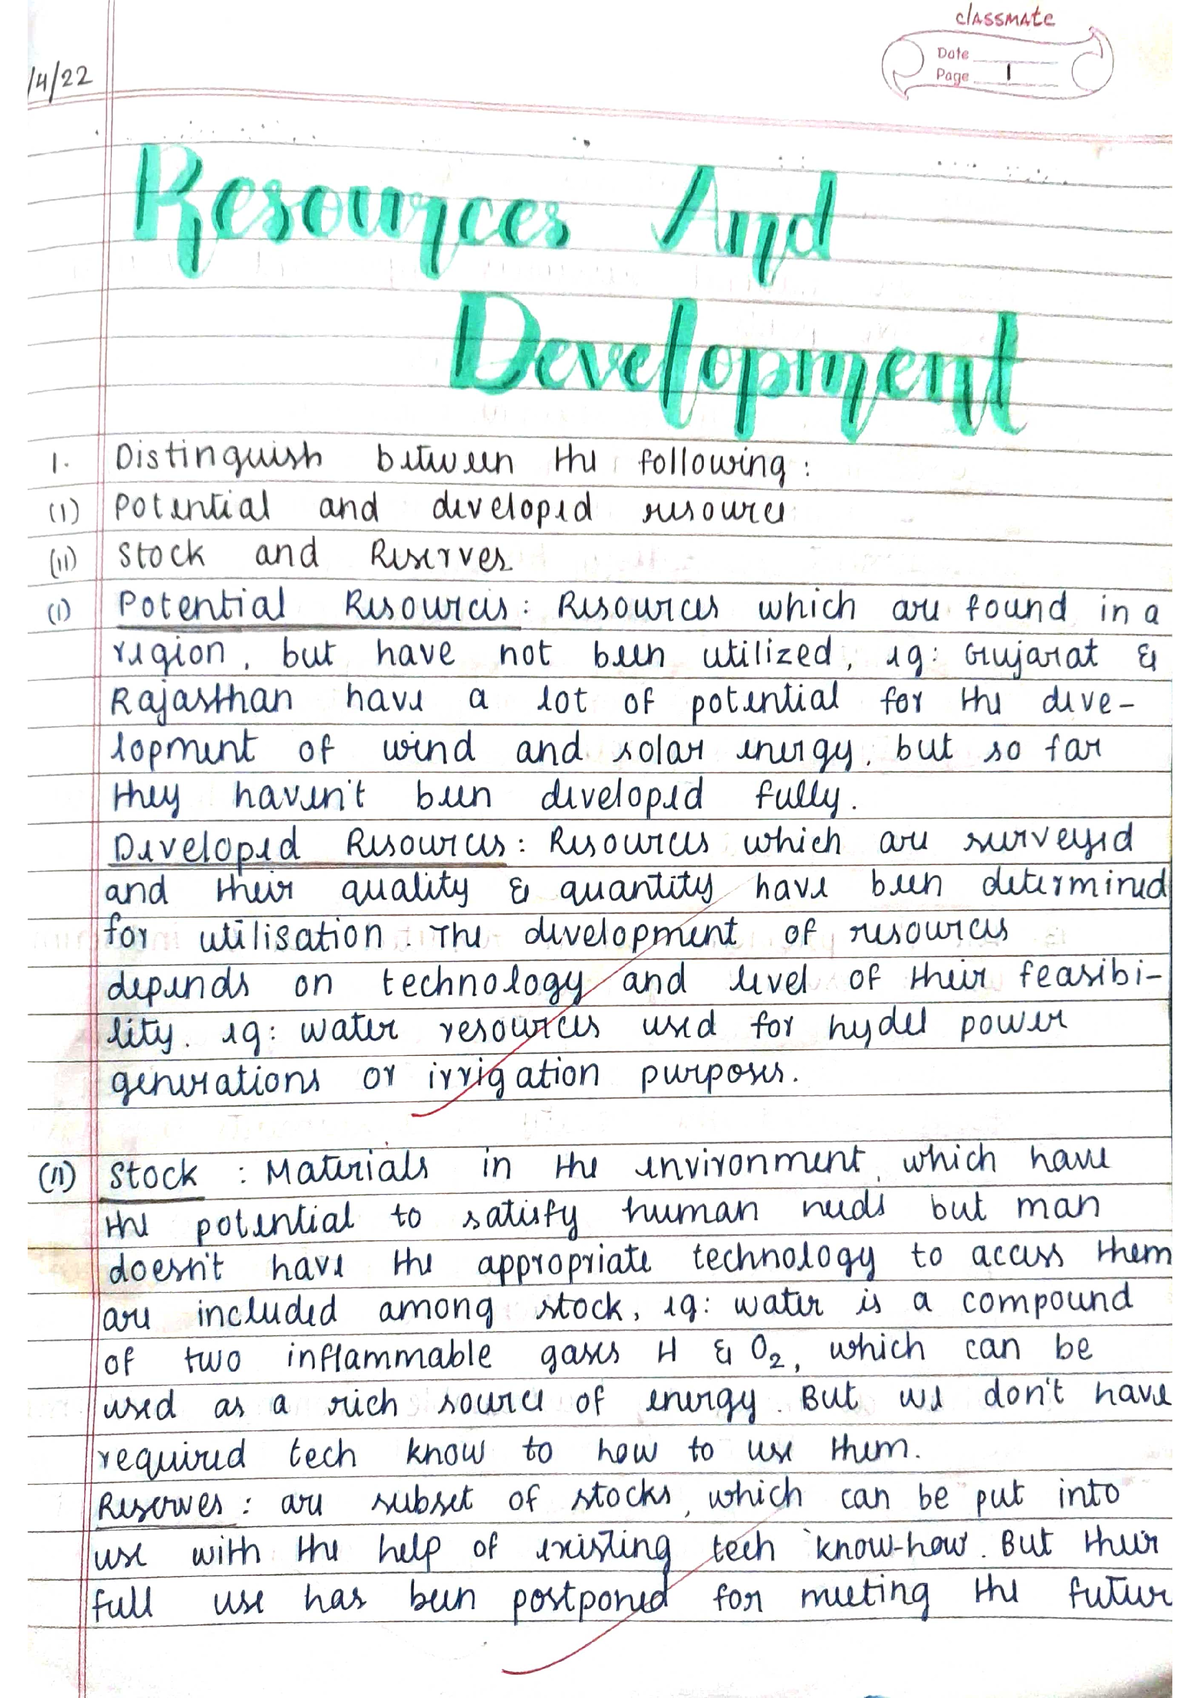 classmate
Date
Page 1
/4/22
Resources And
Development
1. Distinguish between the following:
(i) Potential and developed resource
(ii) Stock and Reserves
(i) Potential Resources: Resources which are found in a
region, but have not been utilized, eg: Gujarat &
Rajasthan have a lot of potential for the deve-
lopment of wind and solar energy, but so far
they haven't been developed fully.
Developed Resources: Resources which are surveyed
and their quality & quantity have been determined
for utilisation. The development of resources
depends on technology and level of their feasibi-
lity. eg: water resources used for hydel power
generations or irrigation purposes.
(ii) Stock : Materials in the environment which have
the potential to satisfy human needs but man
doesn't have the appropriate technology to access them
are included among stock, eg: water is a compound
of two inflammable gases H & O₂, which can be
used as a rich source of energy. But we don't have
required tech know to how to use them.
Reserves : are subset of stocks, which can be put into
use with the help of existing tech 'know-how. But their
full use has been postponed for meeting the futur